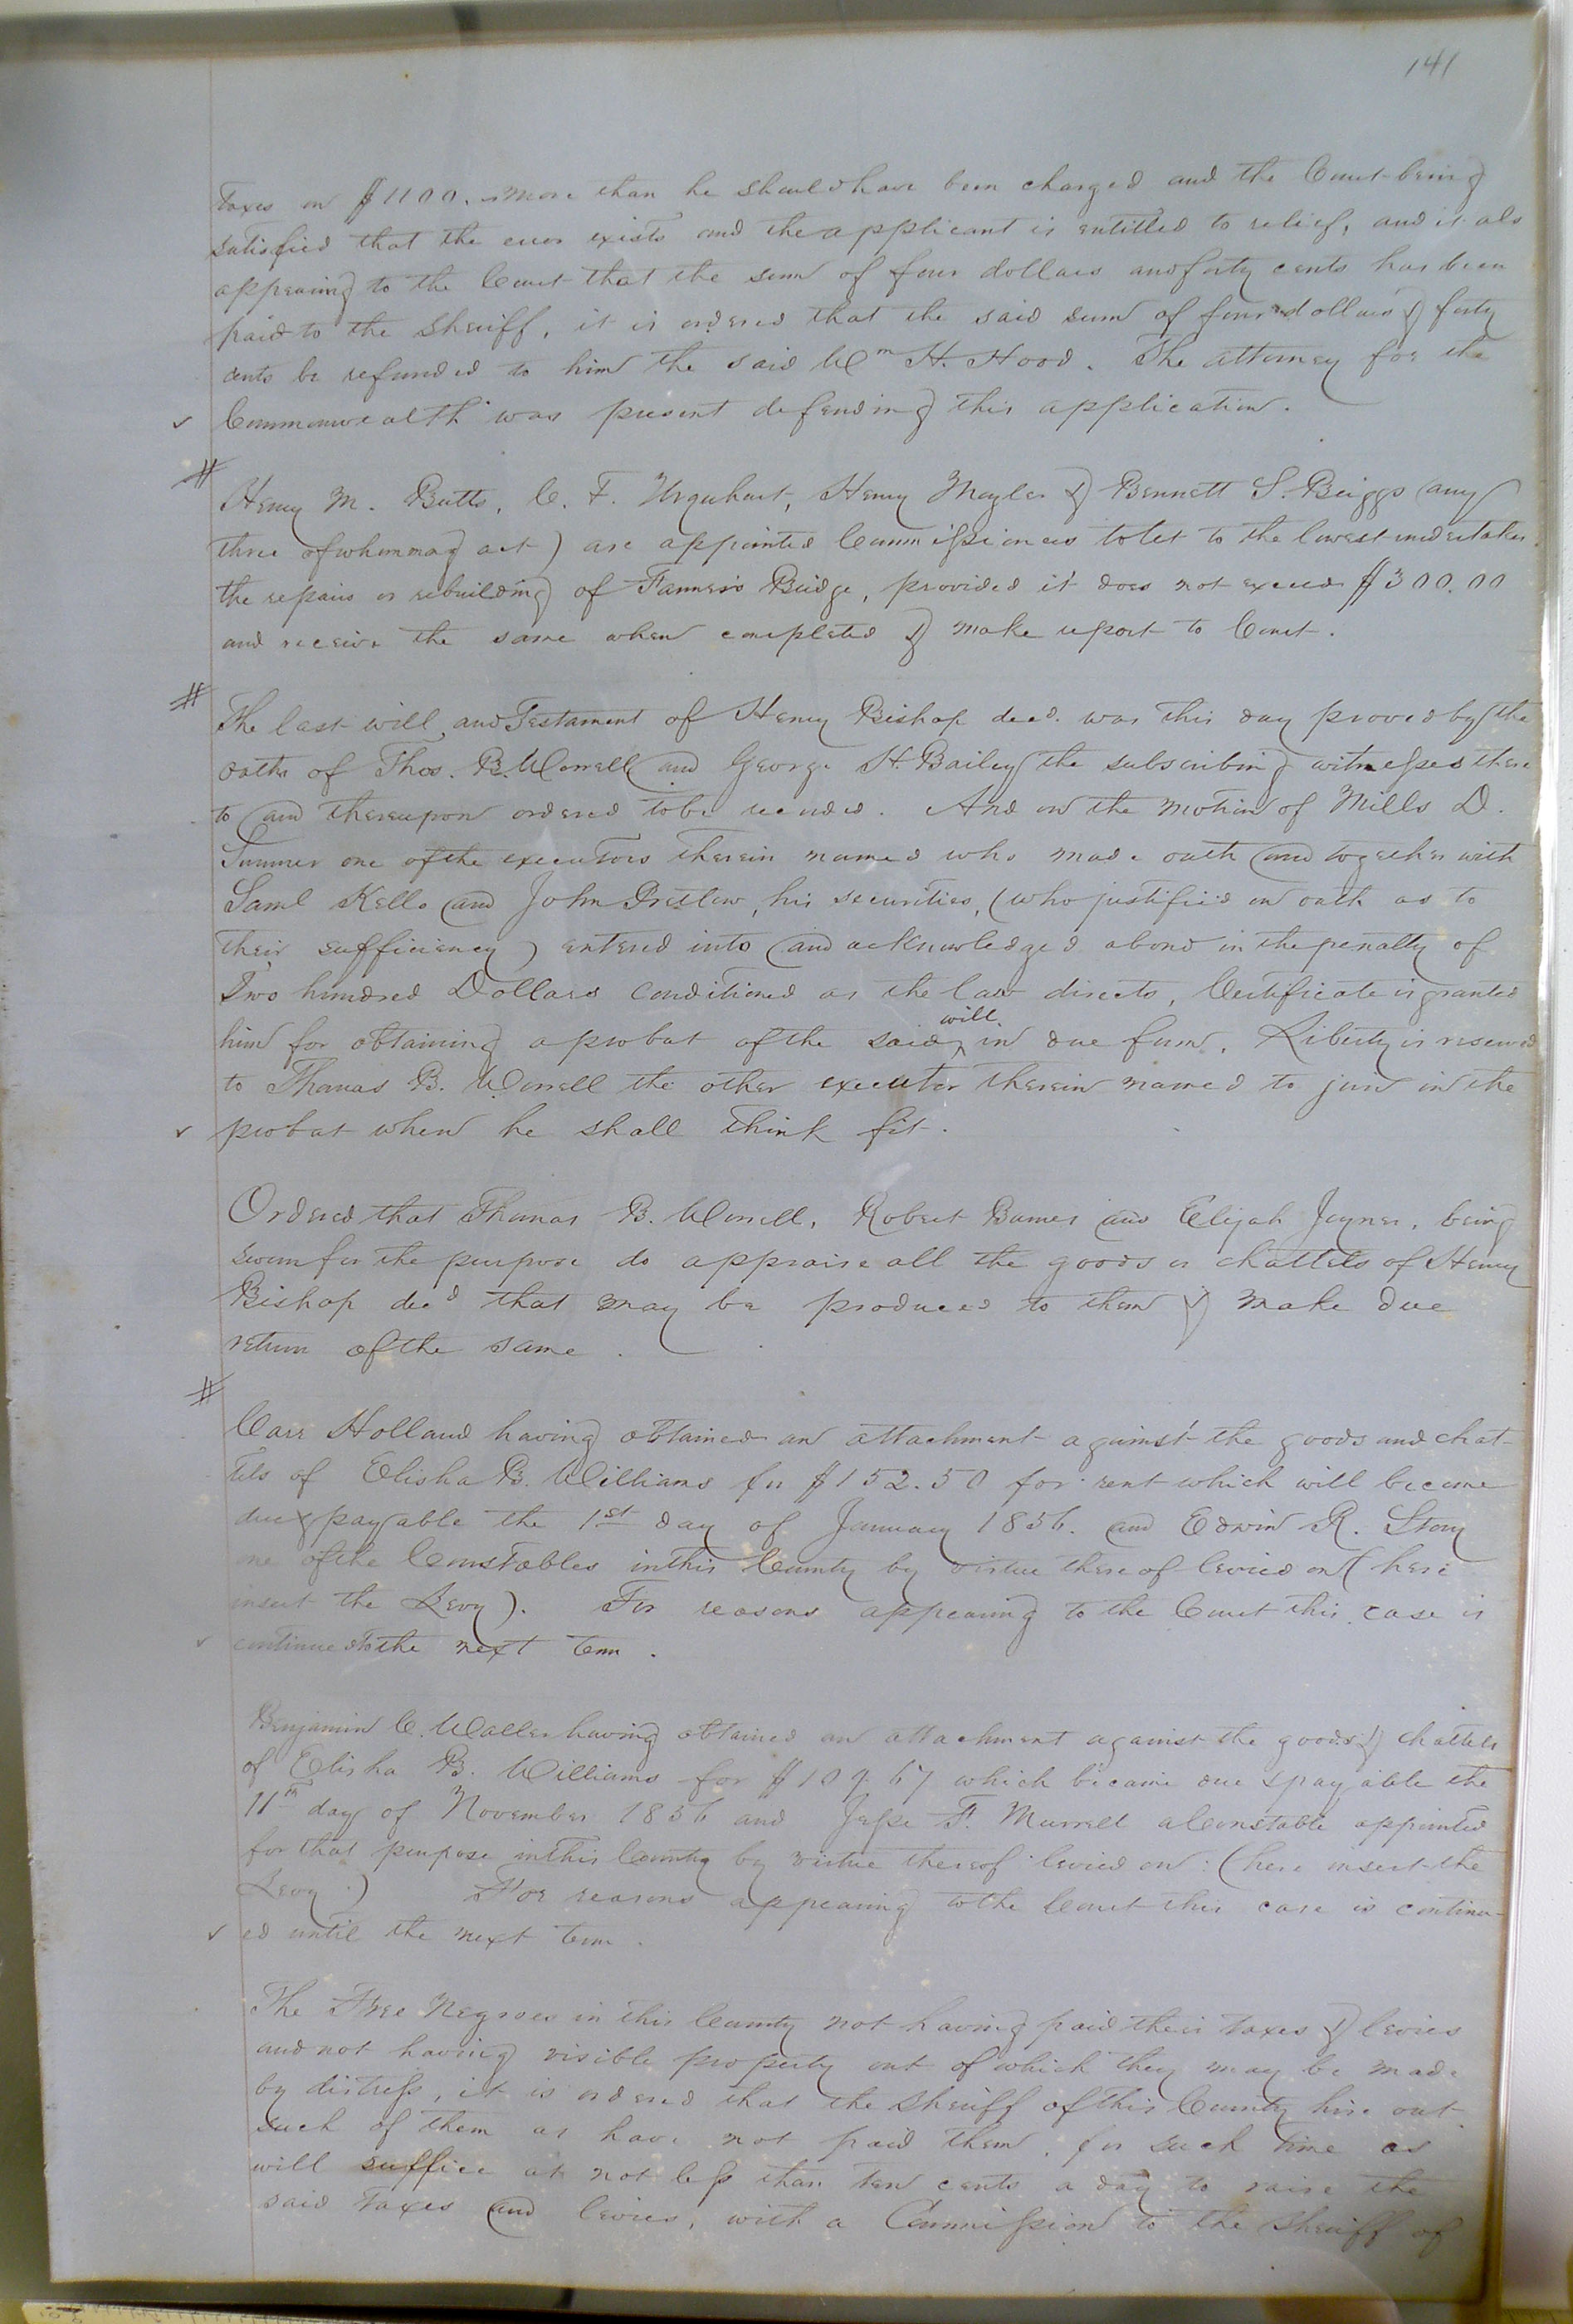 141
Taxes on $1100. more than he should have been charged and the Court being
satisfied that the error exists and the applicant is entitled to relief, and it als
appearing to the Court that the sum of four dollars and forty cents has been
paid to the Sheriff, it is ordered that the said sum of four dollars & forty
cents be refunded to him the said Wm H. Hood. The attorney for the
Commonwealth was present defending this application.
Henry M. Butts, C. F. Urquhart, Henry Moyler & Bennett S. Briggs (any
three of whom may act) are appointed Commissioners to let to the lowest undertaker
the repairs or rebuilding of Farmer's Bridge, provided it does not exceed $300.00
and receive the same when completed & make report to Court.
The last will and Testament of Henry Bishop decd. was this day proved by the
oaths of Thos. B. Worrell and George H. Bailey the subscribing witnesses there
to and thereupon ordered to be recorded. And on the motion of Mills D.
Sumner one of the executors therein named who made oath and together with
Saml Kello and John Pretlow, his securities, (who justified on oath as to
their sufficiency) entered into and acknowledged a bond in the penalty of
Two hundred Dollars conditioned as the law directs, Certificate is granted
him for obtaining a probat of the said will in due form. Liberty is reserved
to Thomas B. Worrell the other executor therein named to join in the
probat when he shall think fit.
Ordered that Thomas B. Worrell, Robert Barnes and Elijah Joyner, being
sworn for the purpose do appraise all the goods or chattels of Henry
Bishop decd that may be produced to them & make due
return of the same.
Carr Holland having obtained an attachment against the goods and chat-
tels of Elisha B. Williams for $152.50 for rent which will become
due & payable the 1st day of January 1856. and Edwin R. Story
one of the Constables in this County by virtue thereof levied on (here
insert the Levy). For reasons appearing to the Court this case is
continued to the next term.
Benjamin C. Waller having obtained an attachment against the goods & chattels
of Elisha B. Williams for $109.67 which became due & payable the
11th day of November 1856 and Jesse F. Murrell a Constable appointed
for that purpose in this County by virtue thereof levied on: (here insert the
Levy.) For reasons appearing to the Court this case is continu-
ed until the next term.
The Free Negroes in this County not having paid their taxes & levies
and not having visible property out of which they may be made
by distress, it is ordered that the Sheriff of this County hire out
such of them as have not paid them, for such time as
will suffice at not less than ten cents a day to raise the
said Taxes and levies, with a Commission to the Sheriff of